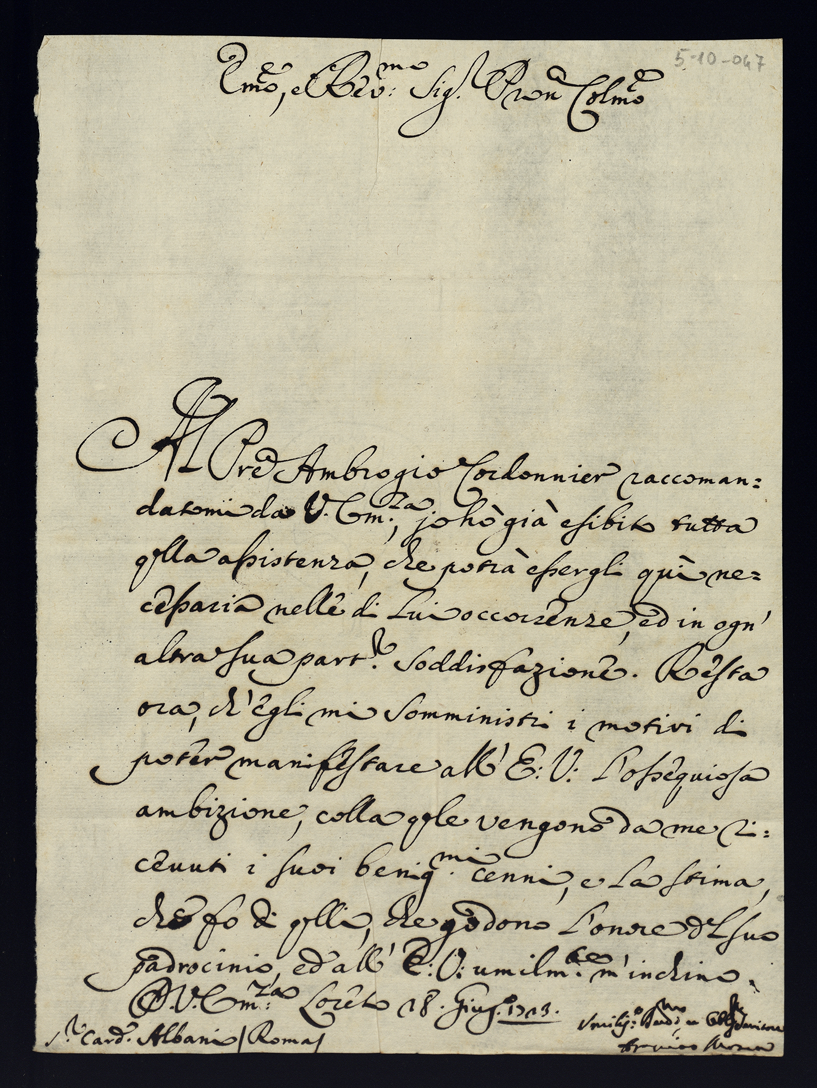 5-10-047
Emo, e Rev:mo Sig.r Pron Colmo
Al Pre Ambrogio Cordonnier raccoman=
datomi da V. Em.za, jo hò già esibito tutta
qlla assistenza, che potrà essergli quì ne=
cessaria nelle di Lui occorrenze, ed in ogn'
altra sua part.re soddisfazione. Resta
ora, ch'egli mi somministri i motivi di
poter manifestare all' E: V: l'ossequiosa
ambizione, colla qle vengono da me ri=
cevuti i suoi benig.mi cenni, e la stima,
che fo di qlli, che godono l'onore del suo
padrocinio, ed all' E: V: umilm.te m'inchino.
D V. Em.za Loreto 18. Giug.o 1713.
S.r Card. Albani / Roma /